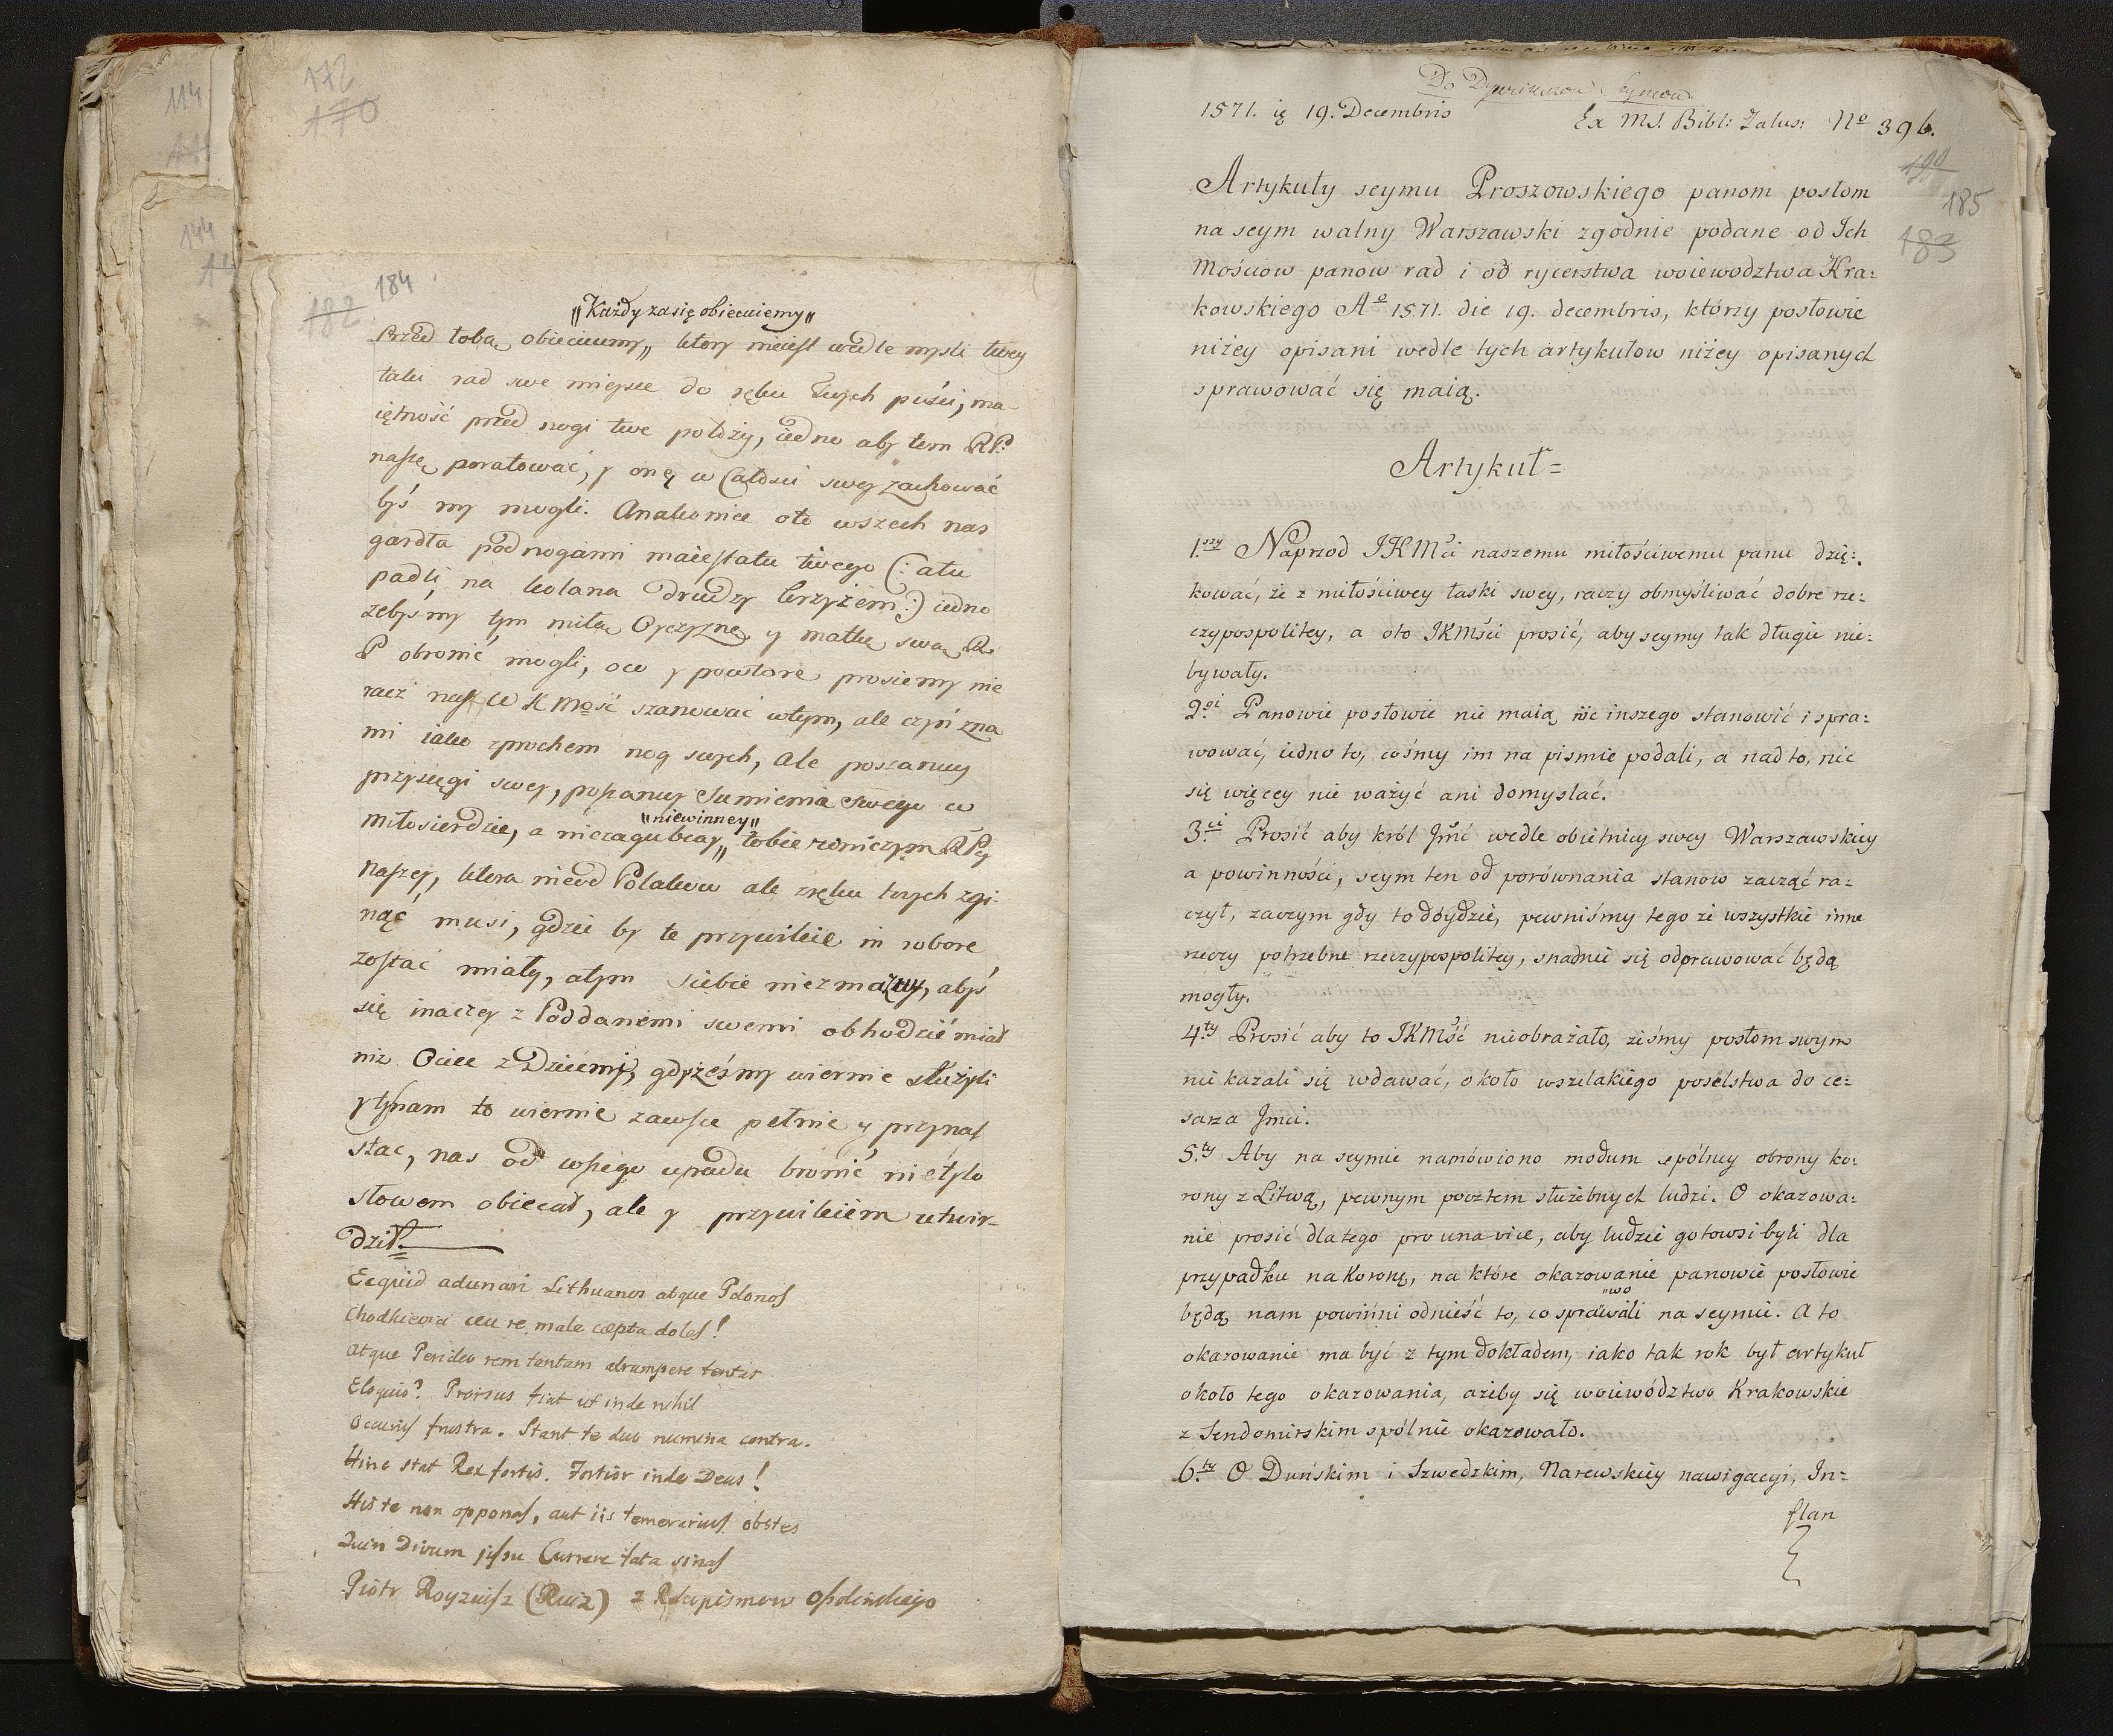 114
144
172
170
184
182
"Każdy zasię obiecuiemy"
przed tobą obiecuiemy,, ktory nieiest wedle mysli twey
taki rad swe miejsce do ręku twych puści, ma-
iętność przed nogi twe położy, iedno aby tem RP.
naszę poratować, y onę w Całości swey zachować
byś my mogli. Anakonice oto wszech nas
gardła pod nogami maiestatu twego (: a tu
padli na kolana drudzy krzyżem :) iedno
zebyśmy tym miłą Oyczyznę y matkę swą R.
P obronić mogli, oco y powtore prosiemy nie
racz nasz W K Mość szanować wtym, ale czyń zna
mi iako zprochem nog swych, Ale poszanuy
przysięgi swey, poszanuy Sumienia swego w
"niewinney"
miłosierdzie, a niezagubiay,, tobie winiczym R Py
naszey, ktora nieod Polakow ale zręku twych zgi-
nąć musi, gdzie by te przywileie in robore
zostać miały, atym siebie niezmazuy, abyś
się inaczey z Poddanemi swemi obhodzić miał
niz Ociec z Dziecmi, gdyżeśmy wiernie służyli
y tynam to wiernie zawsze pełnić y przynas
stac, nas od wszego upadu bronić nietylo
słowem obiecał, ale y przywileiem utwir-
dził.
Ecquid adunari Lithuanos atque Polonos
Chodkievici ceu re male cœpta doles!
Atque Periclo rem tantam abrumpere tentas
Eloquio? Prorsus fiat ut inde nihil
Occurris frustra. Stant te duo numina contra.
Hinc stat Rex fortis. Fortior inde Deus!
His te non opponas, aut iis temerarius obstes
Quin Divum jussu Currere fata sinas
Piotr Royzyusz (Ruiz) z Rękopismow Ossolińskiego
Do Dyariuszow Seymow
1571. ię 19. Decembris Ex MS. Bibl: Zalus: No 396.
190
185
183
Artykuły seymu Proszowskiego panom posłom
na seym walny Warszawski zgodnie podane od Ich
Mościow panow rad i od rycerstwa woiewodztwa Kra=
kowskiego Ao 1571. die 19. decembris, którzy posłowie
niżey opisani wedle tych artykułow niżey opisanych
sprawować się maią.
Artykuł=
1.szy Naprzod JKMci naszemu miłościwemu panu dzię=
kować, że z miłościwey łaski swey, raczy obmyśliwać dobre rze=
czypospolitey, a oto JKMści prosić, aby seymy tak długie nie=
bywały.
2.gi Panowie posłowie nie maią nic inszego stanowić i spra=
wować, iedno to, cośmy im na pismie podali, a nad to, nic
się więcey nie ważyć ani domyslać.
3.ci Prosić aby król Jmć wedle obietnicy swey Warszawskiey
a powinności, seym ten od porównania stanow zacząć ra=
czył, zaczym gdy to dóydzie, pewniśmy tego że wszystkie inne
rzeczy potrzebne rzeczypospolitey, snadnie się odprawować będą
mogły.
4.ty Prosić aby to JKMść nieobrażało, żeśmy posłom swym
nie kazali się wdawać, około wszelakiego poselstwa do ce=
sarza Jmci.
5.ty Aby na seymie namówiono modum spólney obrony ko=
rony z Litwą, pewnym pocztem służebnych ludzi. O okazowa=
nie prosić dlatego pro una vice, aby ludzie gotowsi byli dla
przypadku na Koronę, na które okazowanie panowie posłowie
"wo
będą nam powinni odnieść to, co sprawali na seymie. A to
okazowanie ma być z tym dokładem, iako tak rok był artykuł
około tego okazowania, ażeby się woiewództwo Krakowskie
z Sendomirskim spólnie okazowało.
6.ty O Duńskim i Szwedzkim, Narewskiey nawigacyi, In=
flan